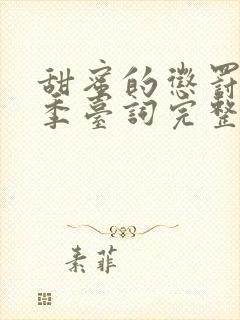 甜蜜的懲罰
季臺詞完整
素菲